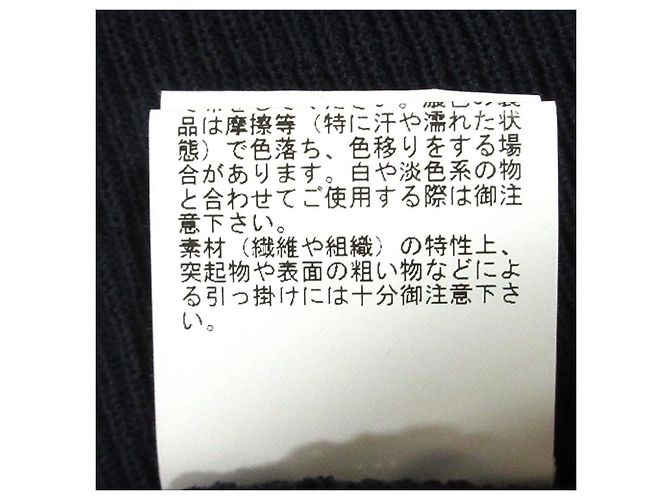 濃色の製
品は摩擦等（特に汗や濡れた状
態）で色落ち、色移りをする場
合があります。白や淡色系の物
と合わせてご使用する際は御注
意下さい。
素材（繊維や組織）の特性上、
突起物や表面の粗い物などによ
る引っ掛けには十分御注意下さ
い。